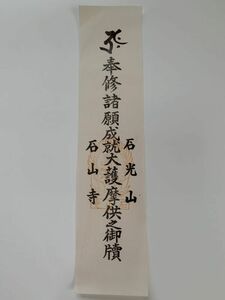 奉修諸願成就大護摩供之御牘
石光山
石山寺